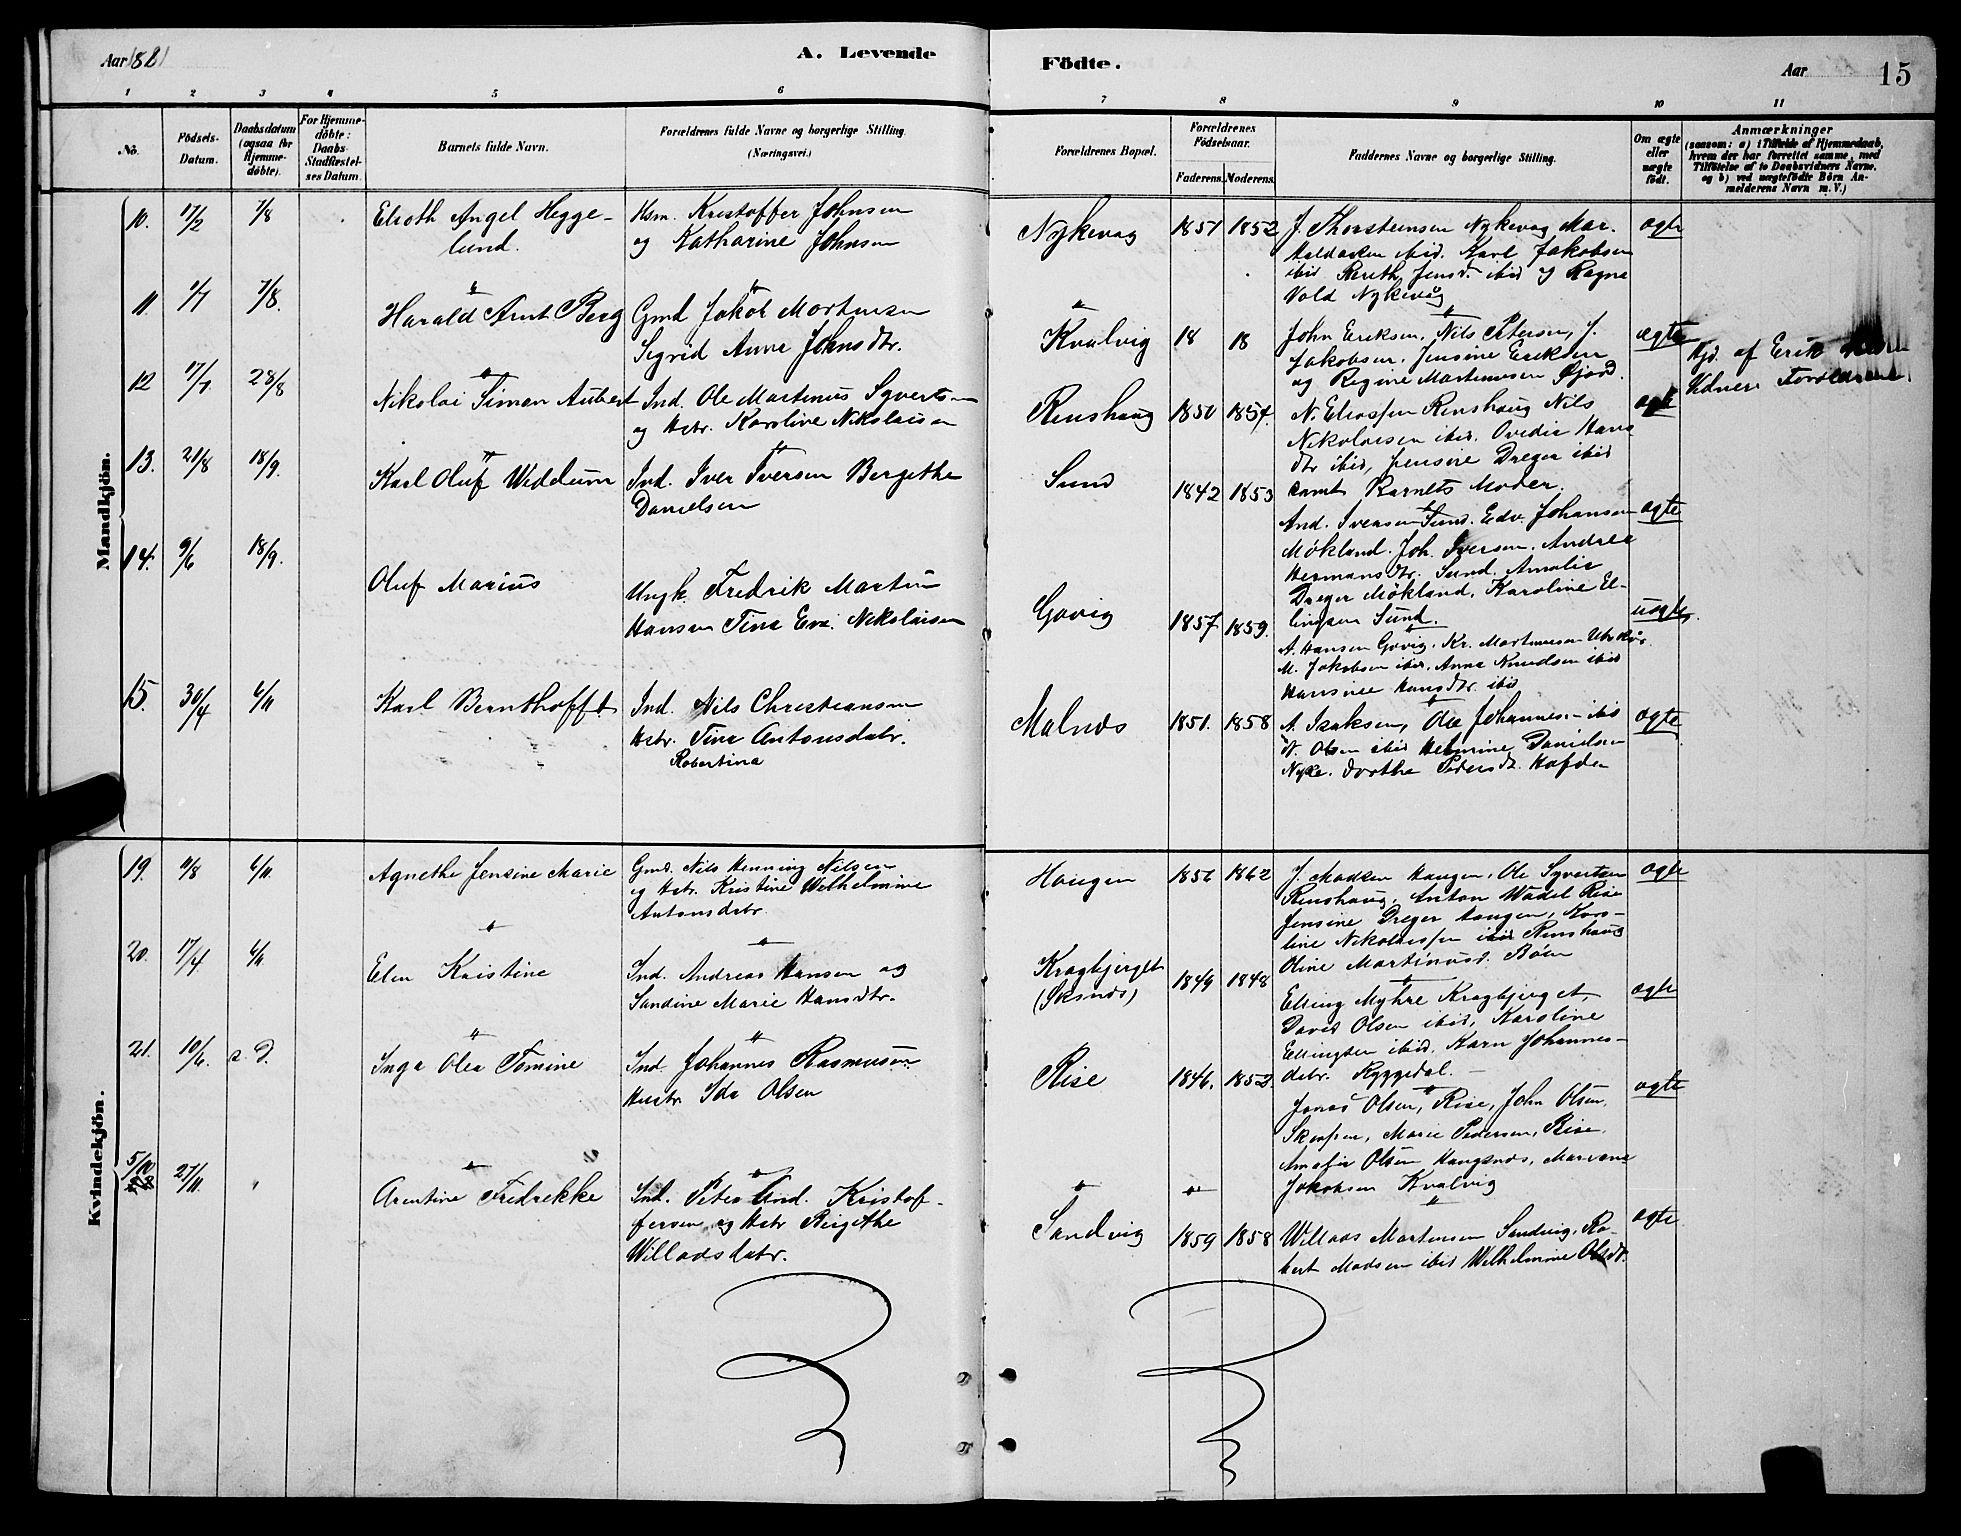 Aar 1881
A. Levende
Födte.
Aar
15
1 2 3 4 5 6 7 8 9 10 11
No.
Födsels-
Datum.
Daabsdatum
(ogsaa for
Hjemme-
döbte).
For Hjemme-
döbte:
Daabs-
Stadfæstel-
ses Datum.
Barnets fulde Navn.
Forældrenes fulde Navne og borgerlige Stilling.
(Næringsvei.)
Forældrenes Bopæl.
Forældrenes
Födselsaar.
Faderens. Moderens.
Faddernes Navne og borgerlige Stilling.
Om ægte
eller
uægte
födt.
Anmærkninger
(saasom: a) i Tilfælde af Hjemmedaab,
hvem der har forrettet samme, med
Tilföielse af to Daabsvidners Navne,
og b) ved uægtefödte Börn An-
melderens Navn m. V.)
Mandkjön.
10. 17/2 7/8
Elioth Angel Hegge-
lund.
Hsm. Kristoffer Johnsen
og Katharine Johnsen
Nykevag 1851 1852
J. Thorsteinsen Nykevag Mar.
ibid. Karl Jakobsen
ibid Jensd. ibid og Ragna
Vold Nykevåg
ægte
11 7/8.
Harald Arnt Berg
Gmd Jakob Mortensen
Sigrid Anna Johnsdtr.
Kvalvig 18 18
John Eriksen, Nils Petersen, J.
Jakobsen, Jensine Eriksen
og Regine Martinusen Fjord.
ægte
Hjd. af Erik
Vidner Forældrene
12 17/7 28/8
Nikolai Simon Aubert
Ind. Ole Martenus Syverts-
og Hstr. Karoline Nikolaisen
Renshaug 1850 1857.
N. Eliassen Renshaug Nils
Nikolaisen ibid. Ovedia Hans
dtr ibid, Jensine Dreyer ibid
samt Barnets Moder.
ægte
13. 21/8 18/9.
Karl Oluf Weddum
Ind. Iver Iversen Bergithe
Danielsen
Sund 1842 1853
And. Iversen Sund. Edv. Johansen
Mökland. Joh. Iversen. Andrea
Hermansdtr. Sund. Amalie
Dreyer Mökland, Karoline El-
lingsen Sund.
ægte
14. 9/6 18/9.
Oluf Marius
Ungk. Fredrik Martin
Hansen Tina Eva. Nikolaisen
Govig 1857 1859.
A. Hansen Govig, Kr. Martinusen
M. Jakobsen ibid, Anna Knudsen ibid
Hansine Hansdtr. ibid
uægte
15. 30/4 6/11
Karl Bernthofft
Ind. Nils Christiansen
Hstr. Tina Antonsdatr.
Robertina
Malnæs 1851. 1858
A. Isaksen, Ole Johannes.- ibid
N. Olsen ibid Helmine Danielsen
Nyke. Dorthe Pedersdt. Hafden
ægte
Kvindekjön.
19. 11/8 6/11.
Agnethe Jensine Marie
Gmd. Nils Henning Nilsen
og Hstr. Kristine Wilhelmine
Antonsdatr.
Haugen 1856 1862
J. Madsen Haugen, Ole Syvertsen
Renshaug, Anton Wadel Rise
Jensine Dreyer Haugen, Karo-
line Nikolaisen ibid Renshaug
Oline Martinusd. Böen
ægte
20. 17/4 6/11
Elen Kristine
Ind. Andreas Hansen og
Sandine Marie Hansdtr.
Kragbjerget
(Skinnes) 1849 1848
Elling Myhre Kragbjerget,
David Olsen ibid, Karoline
Ellingsen ibid. Karn Johannes-
datr. Ryggedal.
ægte
21. 10/6. s. D.
Inga Olea Tomine
Ind. Johannes Rasmussen
Hustr. Ida Olsen
Rise 1846. 1852.
Jonas Olsen, Rise, John Olsen,
Marie Pedersen, Rise.
Olsen Haugsnes, Mariane
Jakobsen Kvalvig
ægte
27/11. "
Arentine Fredrekke
Ind. Peter And. Kristof-
fersen og Hstr Birgithe
Willadsdatr.
Sandvig 1859 1858
Willads Martensen Sandvig, Ro-
bert Madsen ibid Wilhelmine Olsdt.
ægte